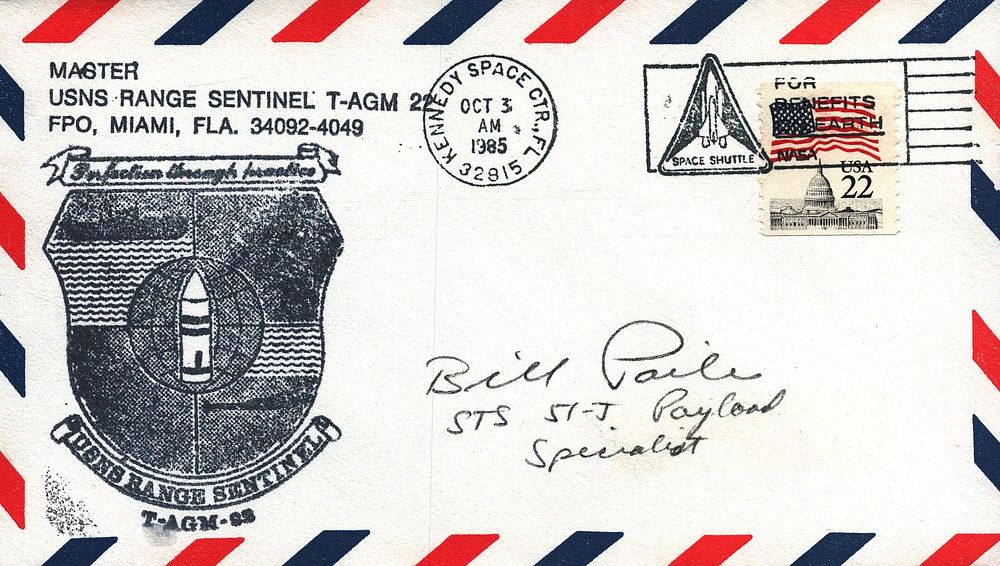 MASTER
USNS RANGE SENTINEL T-AGM 22
FPO, MIAMI, FLA. 34092-4049
KENNEDY SPACE CTR., FL
OCT 3
AM
1985
32815
SPACE SHUTTLE
FOR
BENEFITS
EARTH
NASA
USA
22
Perfection through practice
USNS RANGE SENTINEL
T-AGM-22
Bill Paile
STS 51-J Payload
Specialist